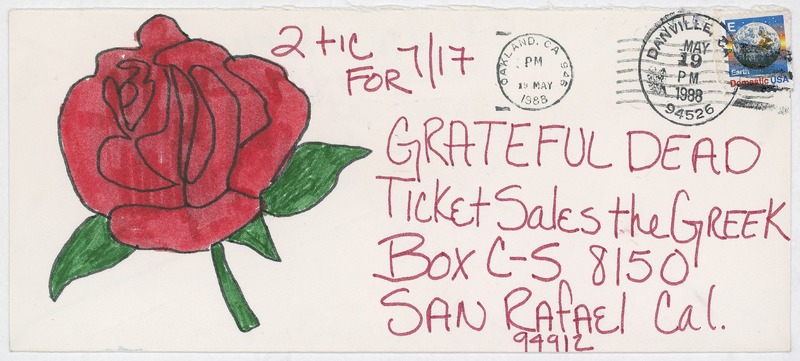 2 tic
FOR 7/17
OAKLAND, CA 946
PM
19 MAY
1988
DANVILLE, C
MAY
19
PM
1988
94526
E
Earth
Domestic USA
GRATEFUL DEAD
Ticket Sales the GREEK
Box C-S 8150
SAN Rafael Cal.
94912